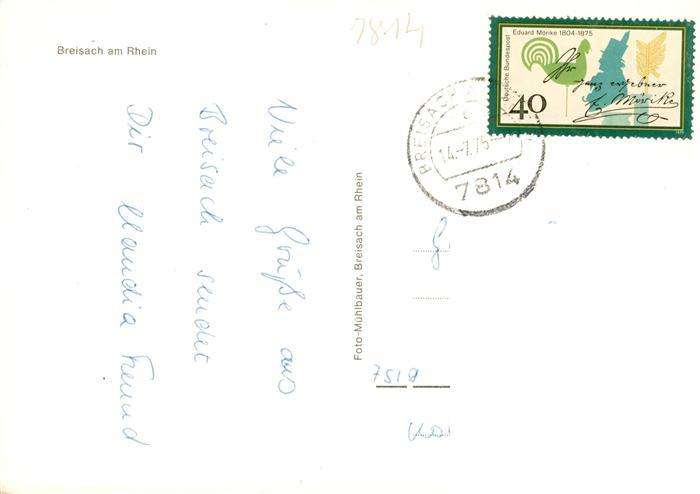 Breisach am Rhein
7814
Viele Grüße aus
Breisach sendet
Dir Claudia Freund
Foto-Mühlbauer, Breisach am Rhein
Eduard Mörike 1804-1875
Deutsche Bundespost
40
ganz ergebner
E. Mörike
BREISACH
14.-7.75
7814
7519